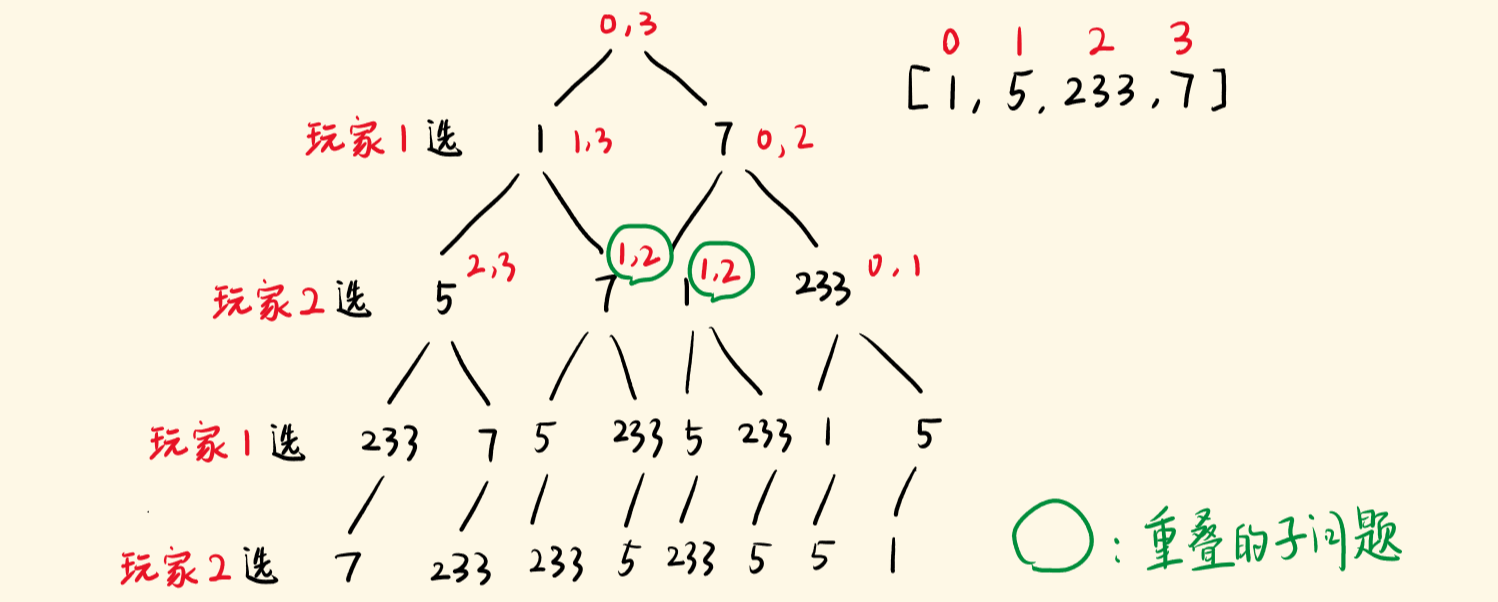 0,3
0 1 2 3
[1,5,233,7]
玩家1选 1 1,3 7 0,2
玩家2选 5 2,3 7 1,2 1 1,2 233 0,1
玩家1选 233 7 5 233 5 233 1 5
玩家2选 7 233 233 5 233 5 5 1
:重叠的子问题